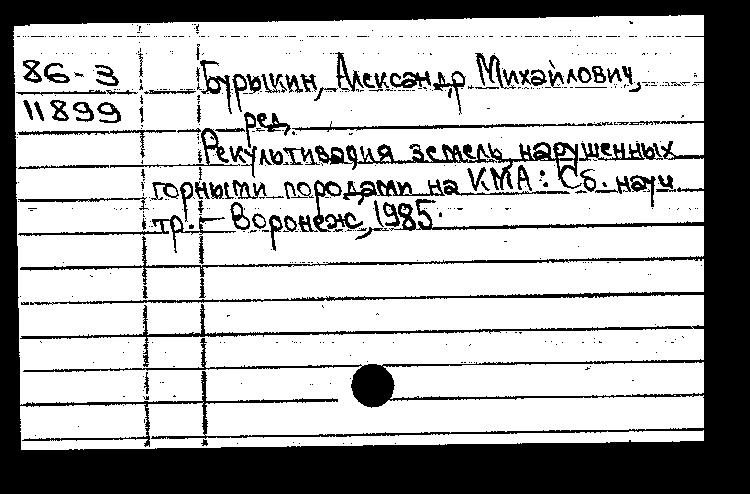 86-3
11899
Бурыкин, Александр Михайлович,
ред.
Рекультивация земель, нарушенных
горными породами на КМА: Сб. науч
тр. – Воронеж, 1985.